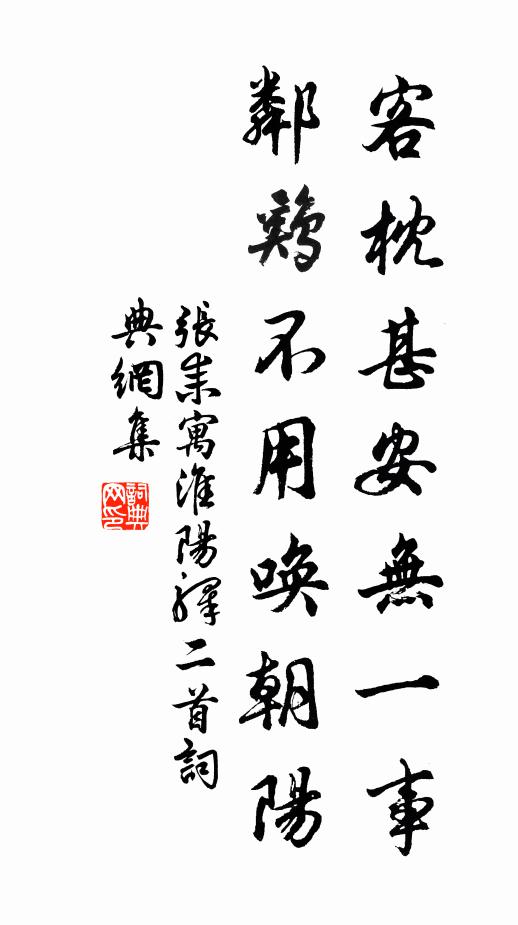 客枕甚安無一事
鄰鷄不用喚朝陽
張耒寓淮陽驛二首詞
典網集
詞典網印